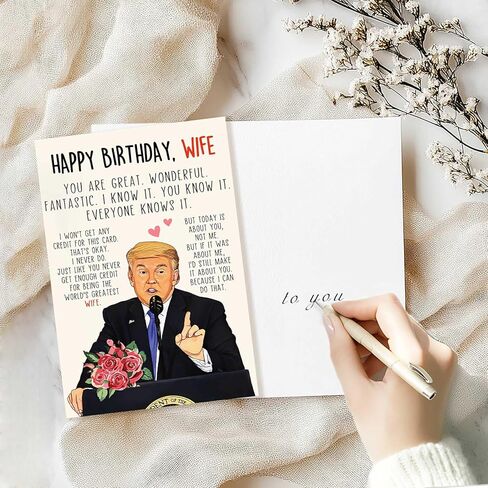 HAPPY BIRTHDAY, WIFE
YOU ARE GREAT. WONDERFUL.
FANTASTIC. I KNOW IT. YOU KNOW IT.
EVERYONE KNOWS IT.
I WON'T GET ANY
CREDIT FOR THIS CARD.
THAT'S OKAY.
I NEVER DO.
JUST LIKE YOU NEVER
GET ENOUGH CREDIT
FOR BEING THE
WORLD'S GREATEST
WIFE.
BUT TODAY IS
ABOUT YOU,
NOT ME.
BUT IF IT WAS
ABOUT ME,
I'D STILL MAKE
IT ABOUT YOU.
BECAUSE I CAN
DO THAT.
ENT OF THE
to you